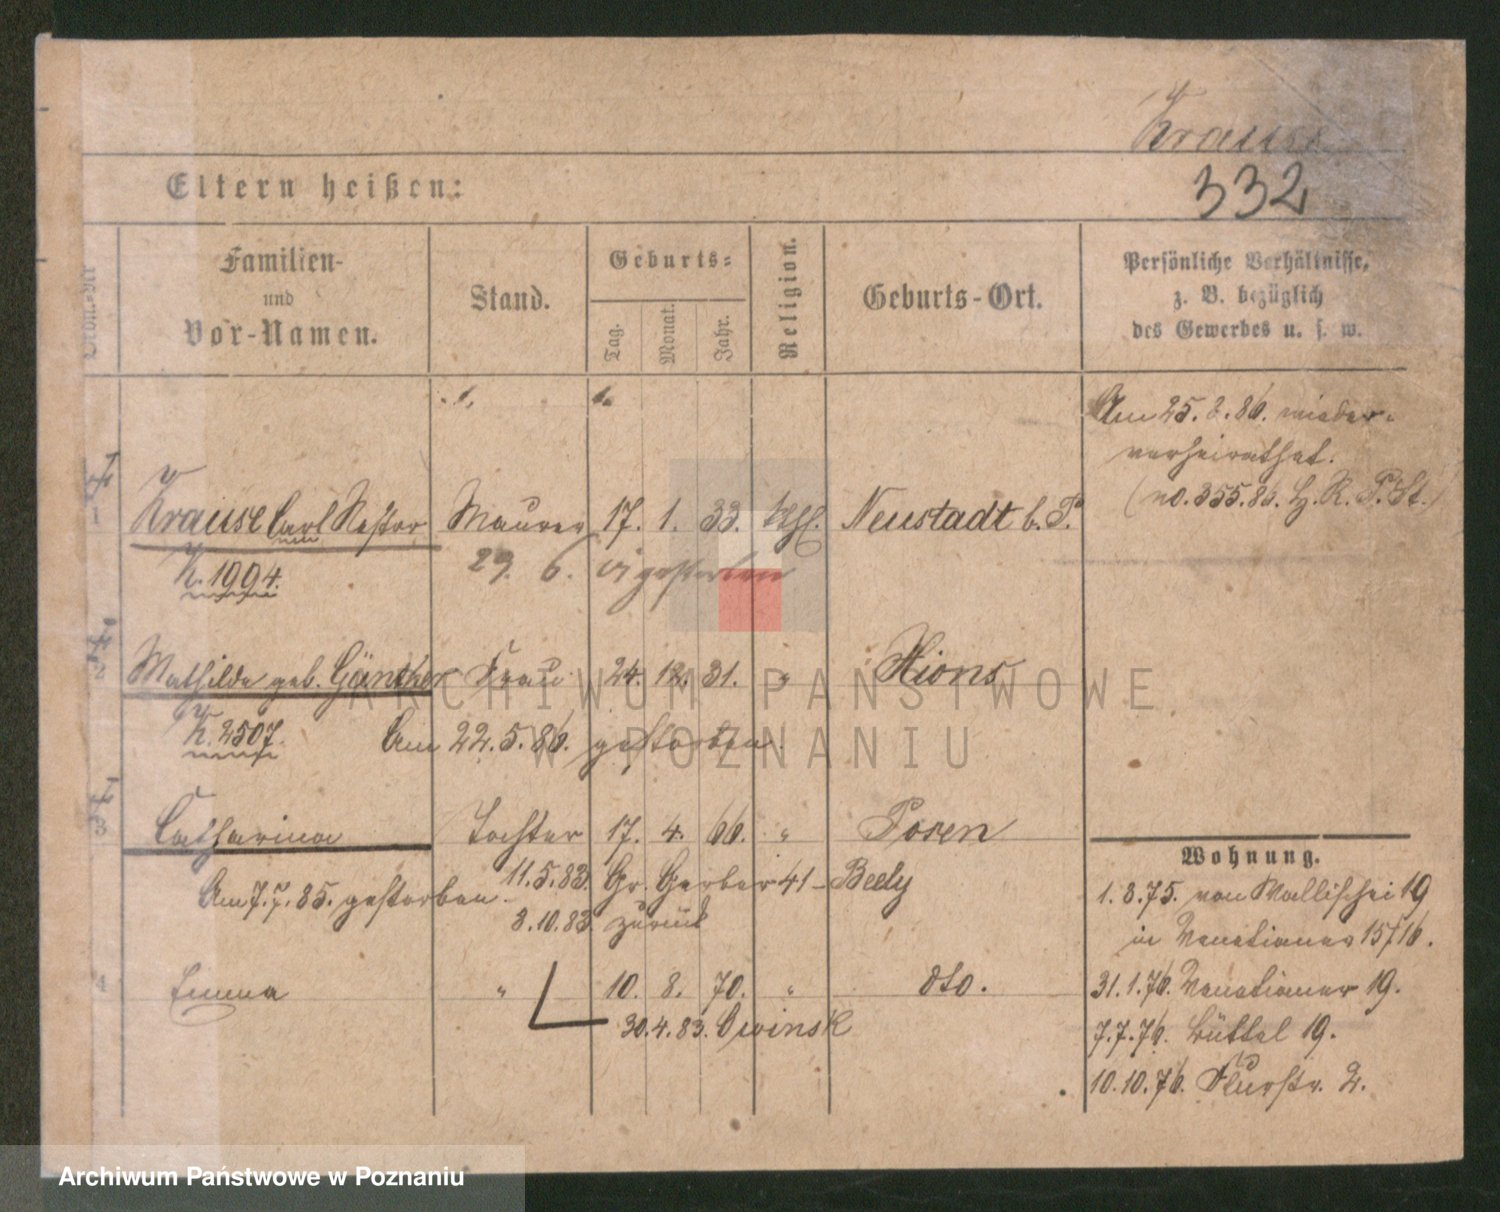 Krause
332
Eltern heißen:
Ordn.-Nr
Familien-
und
Vor-Namen.
Stand.
Geburts-
Tag.
Monat.
Jahr.
Religion.
Geburts-Ort.
Persönliche Verhältnisse,
z. B. bezüglich
des Gewerbes u. s. w.
Am 25. 8. 86. wieder-
verheirathet.
(no. 355.86. H. R. P. St.)
1 Krause Carl Nestor Maurer 17. 1. 33. kth. Neustadt b. P.
K. 1994. 29. 6. 01 gestorben
2 Mathilde geb. Günther Frau 24. 12. 31. " Xions
K. 2507. Am 22. 5. 86. gestorben.
3 Catharina Tochter 17. 4. 66. " Posen
11.5.83. Gr. Gerber 41 - Beely
Am 7. 7. 85. gestorben.
3.10.83. zurück
4 Emma " 10. 8. 70. " dto.
30.4.83. Owinsk
Wohnung.
1. 3. 75. von Wallischei 19
in Venetianer 15/16.
31. 1. 76. Venetianer 19.
7. 7. 76. Büttel 19.
10. 10. 76. Flurstr. 2.
ARCHIWUM PAŃSTWOWE
W POZNANIU
Archiwum Państwowe w Poznaniu